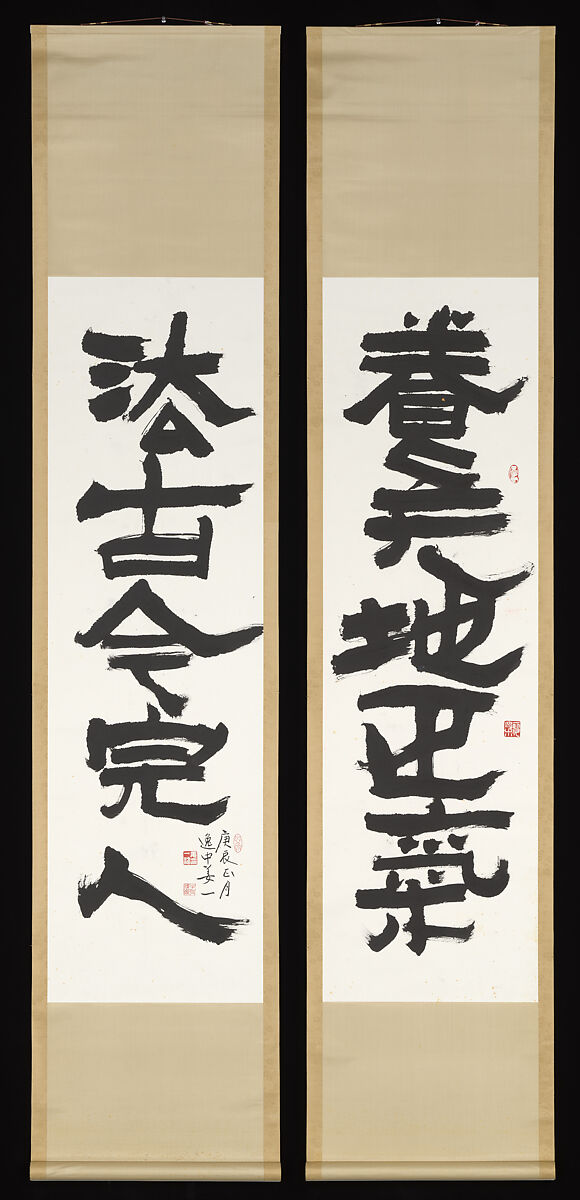 養天地正氣
法古今完人
庚辰正月
逸中姜一